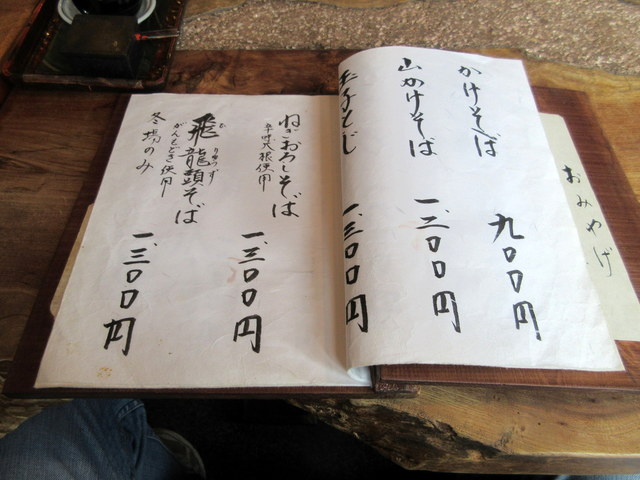 かけそば
九〇〇円
山かけそば
一、二〇〇円
玉子とじ
一、三〇〇円
ねぎおろしそば
辛味大根使用
一、三〇〇円
飛龍頭そば
ひりょうず
がんもどき使用
冬場のみ
一、三〇〇円
おみやげ